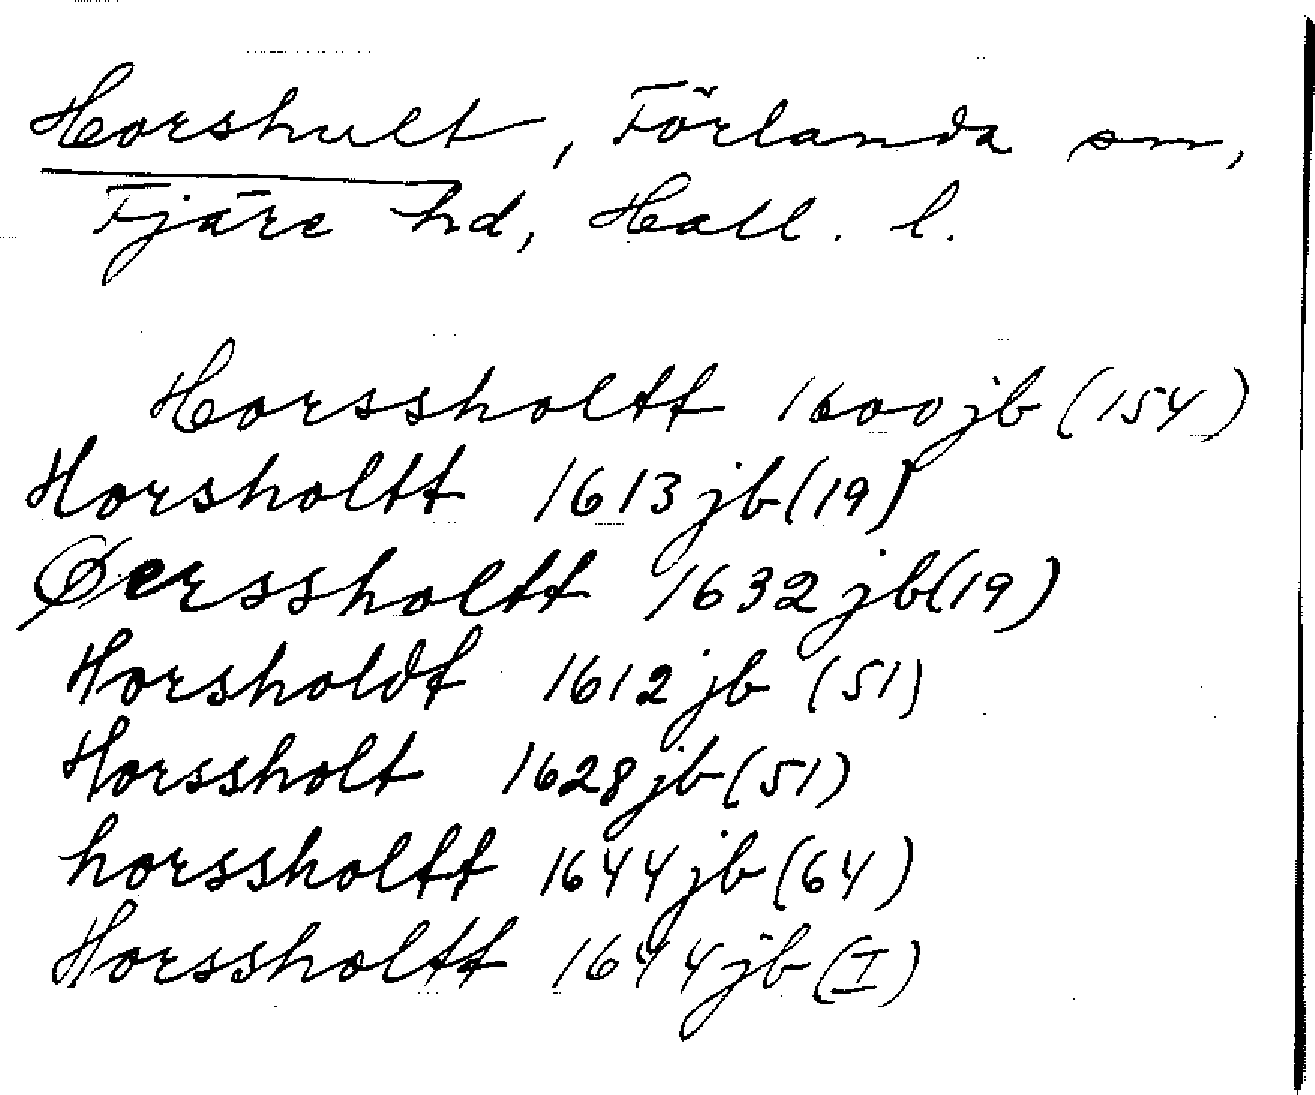 Horshult, Förlanda sn,
Fjäre hd, Hall. l.
Horssholtt 1600 jb (154)
Horsholtt 1613 jb (19)
Øerssholtt 1632 jb (19)
Horsholdt 1612 jb (51)
Horssholt 1628 jb (51)
horssholtt 1644 jb (64)
Horssholtt 1644 jb (I)